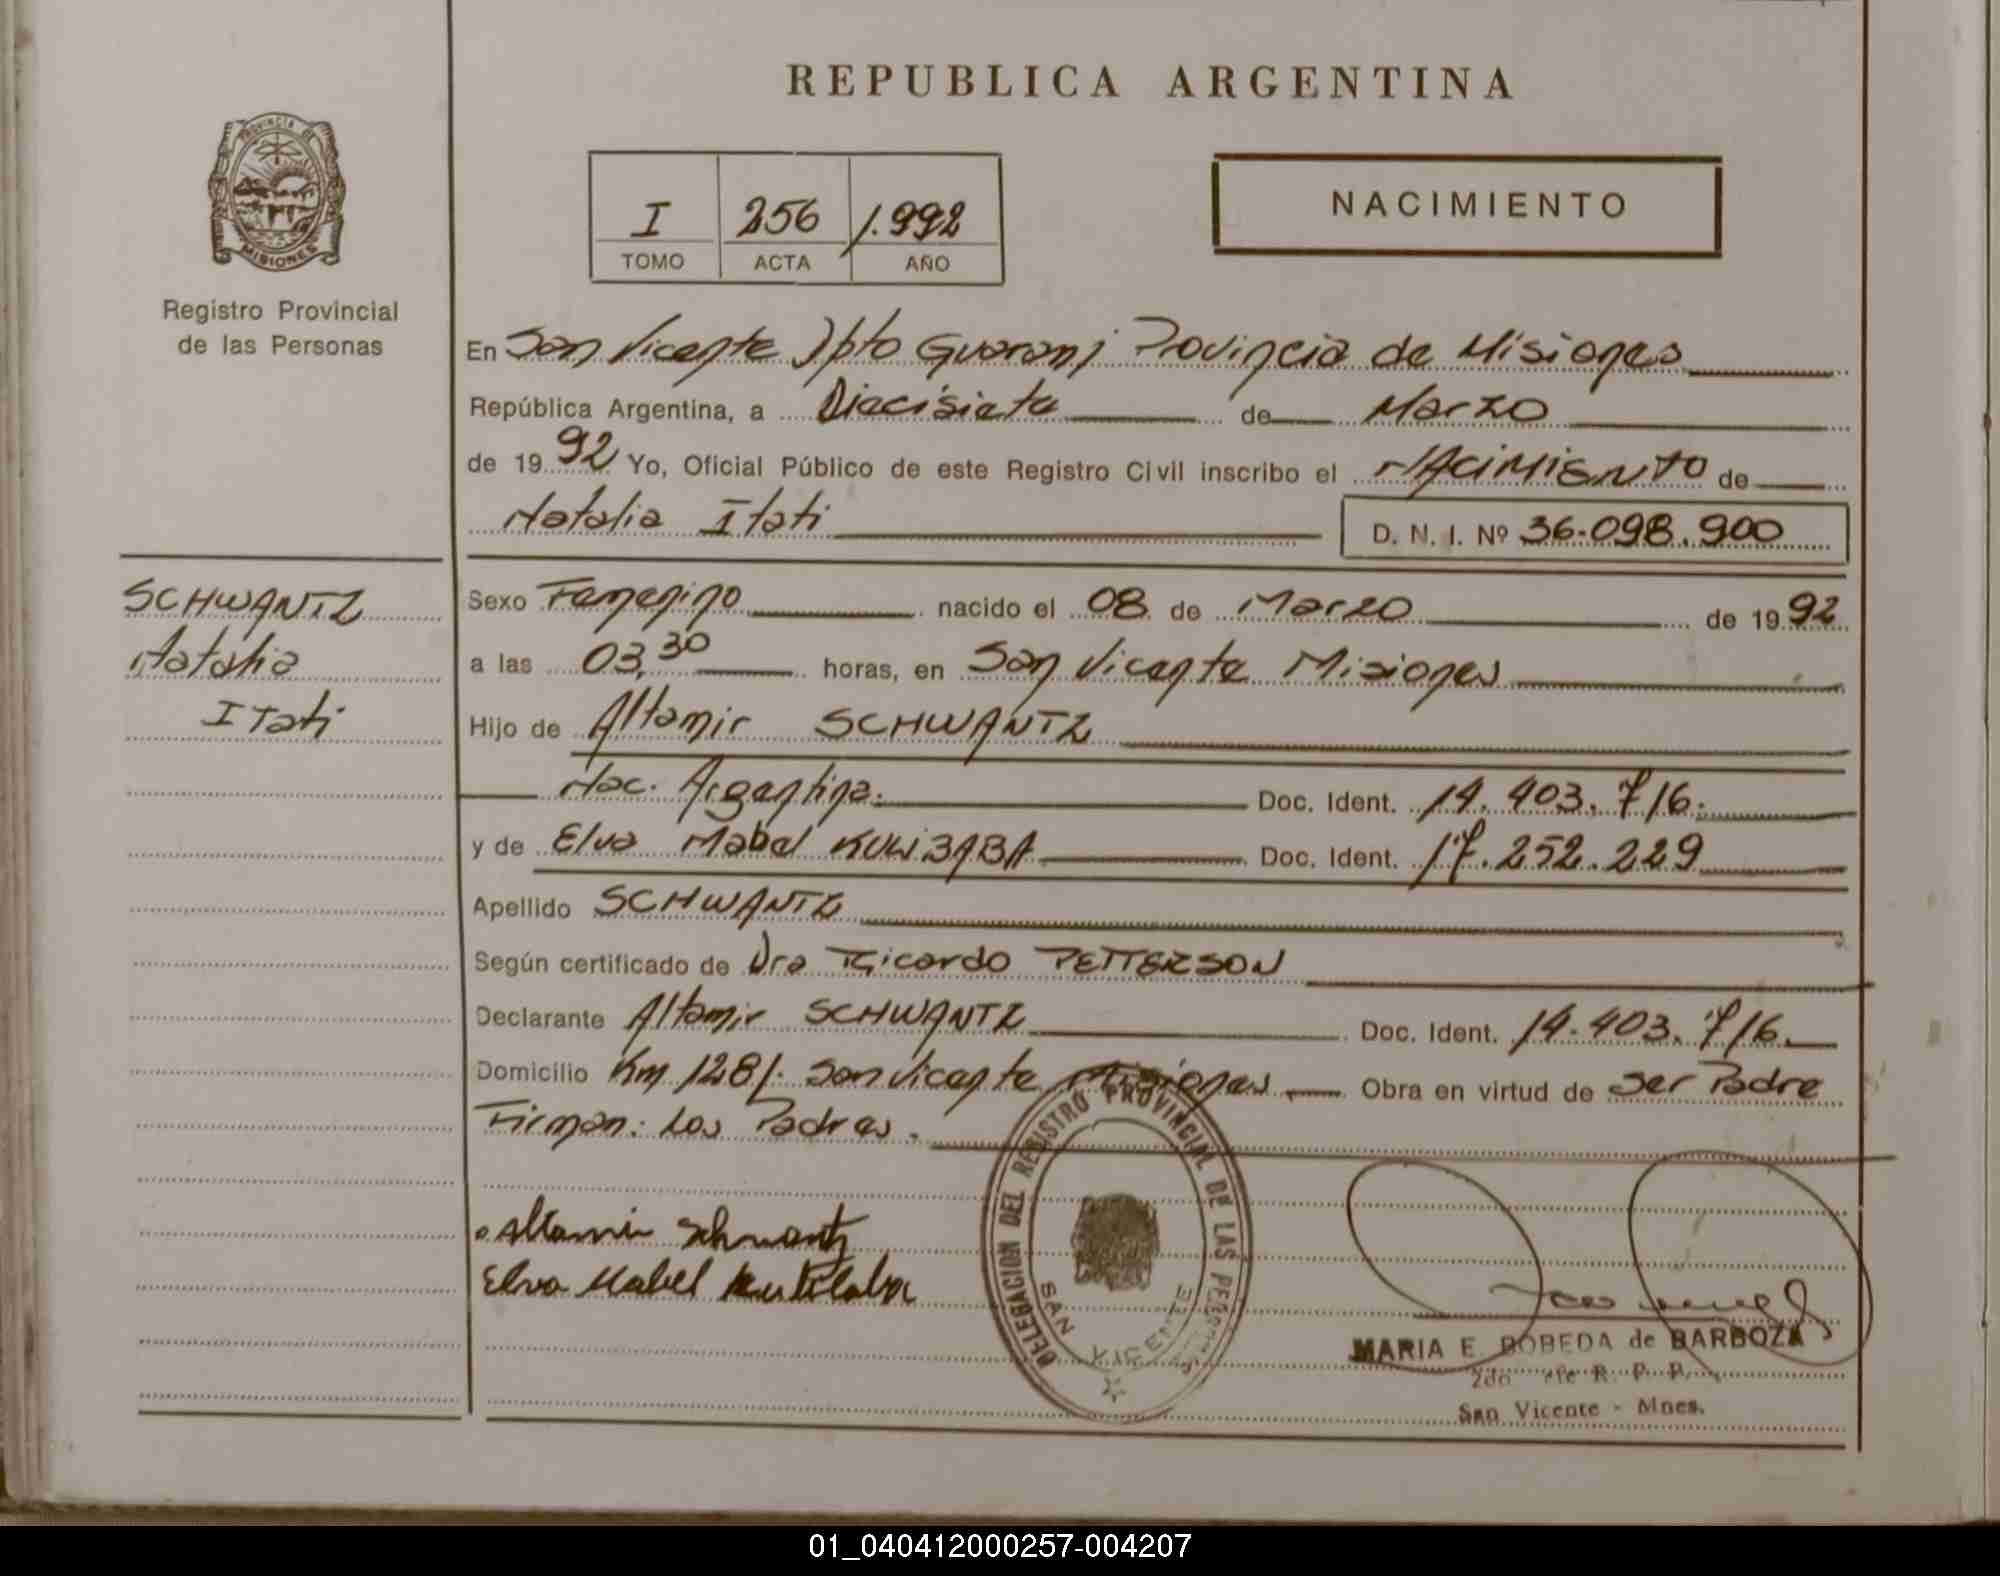 REPUBLICA ARGENTINA
PROVINCIA DE
MISIONES
Registro Provincial
de las Personas
I 256 1.992
TOMO ACTA AÑO
NACIMIENTO
En San Vicente Dpto Guarani Provincia de Misiones
República Argentina, a Diecisiete de Marzo
de 1992 Yo, Oficial Público de este Registro Civil inscribo el NACIMIENTO de
Natalia Itati D. N. I. Nº 36.098.900
SCHWANTZ
Natalia
Itati
Sexo Femenino nacido el 08 de Marzo de 1992
a las 03,30 horas, en San Vicente Misiones
Hijo de Altamir SCHWANTZ
Nac. Argentina. Doc. Ident. 14.403.716.
y de Elva Mabel Doc. Ident. 17.252.229
Apellido SCHWANTZ
Según certificado de Dra Ricardo PETTERSON
Declarante Altamir SCHWANTZ Doc. Ident. 14.403.716.
Domicilio Km 1281. San Vicente Misiones Obra en virtud de Ser Padre
Firman: Los Padres.
Altamir Schwantz
Elva Mabel
DELEGACION DEL REGISTRO PROVINCIAL DE LAS PERSONAS
SAN VICENTE
MARIA E. BOBEDA de BARBOZA
2do R. P. P.
San Vicente - Mnes.
01_040412000257-004207